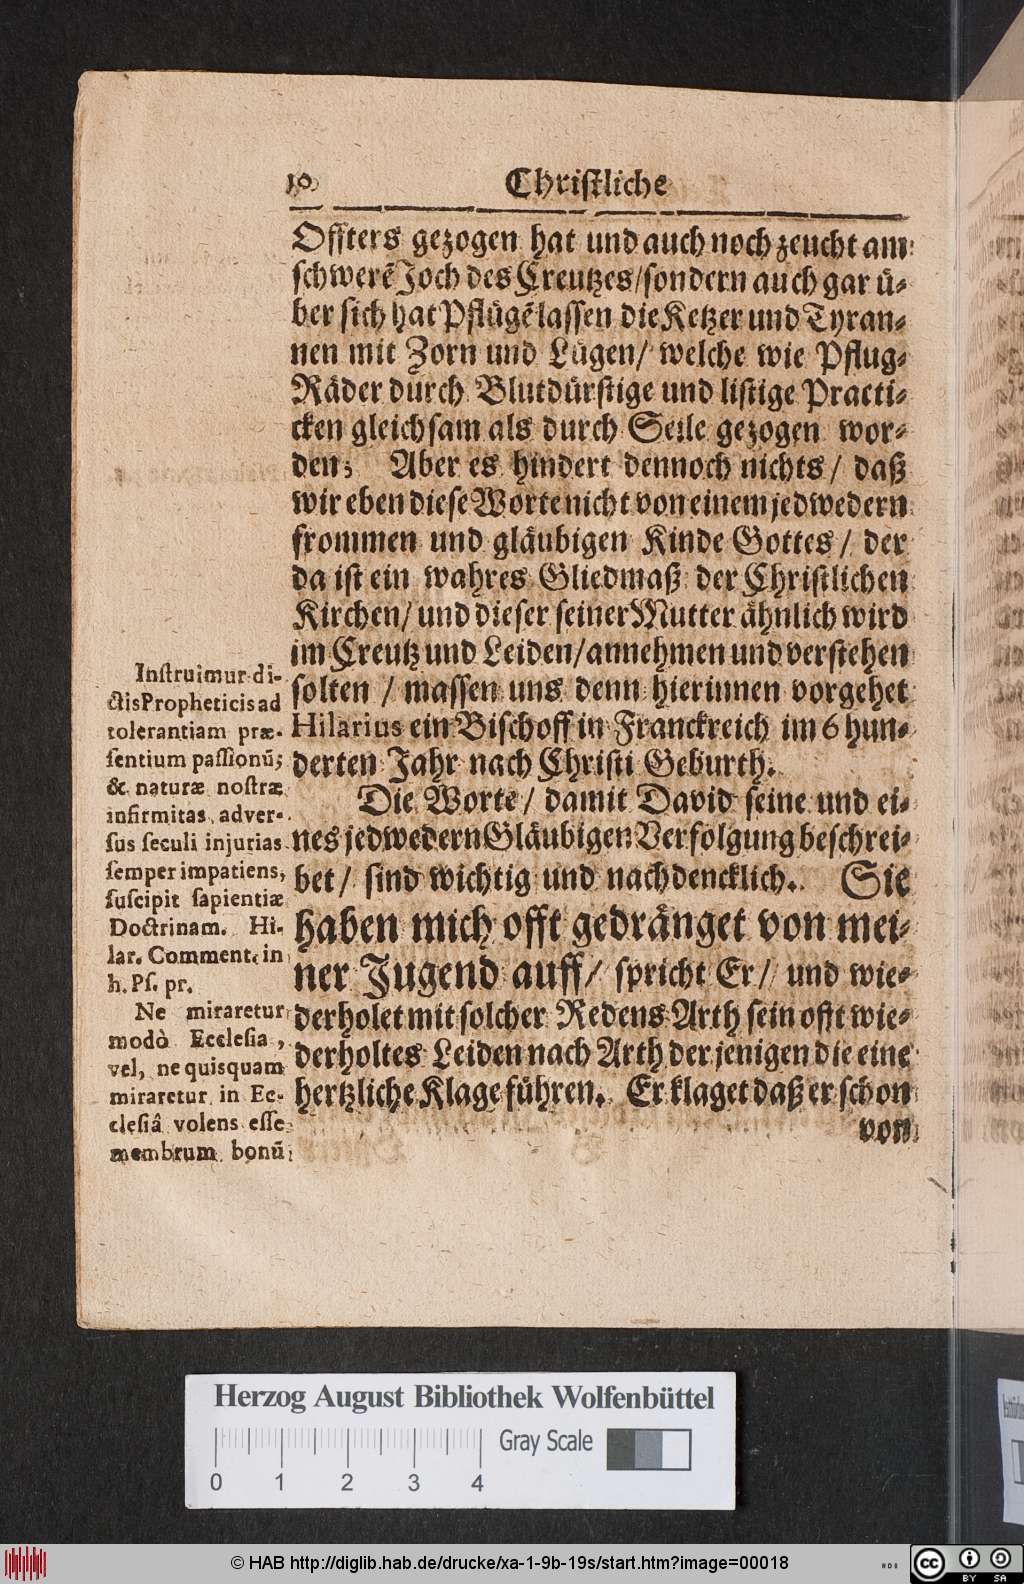 10
Christliche
Offters gezogen hat und auch noch zeucht am
schwerẽ Joch des Creutzes/sondern auch gar ü-
ber sich hat Pflügẽ lassen die Ketzer und Tyran-
nen mit Zorn und Lügen/ welche wie Pflug-
Räder durch Blutdürstige und listige Practi-
cken gleichsam als durch Seile gezogen wor-
den; Aber es hindert dennoch nichts/ daß
wir eben diese Worte nicht von einem jedwedern
frommen und gläubigen Kinde Gottes/ der
da ist ein wahres Gliedmaß der Christlichen
Kirchen/ und dieser seiner Mutter ähnlich wird
im Creutz und Leiden/annehmen und verstehen
solten / massen uns denn hierinnen vorgehet
Hilarius ein Bischoff in Franckreich im 6 hun-
derten Jahr nach Christi Geburth.
Die Worte/ damit David seine und ei-
nes jedwedern Gläubigen Verfolgung beschrei-
bet/ sind wichtig und nachdencklich. Sie
haben mich offt gedränget von mei-
ner Jugend auff/ spricht Er/ und wie-
derholet mit solcher Redens Arth sein offt wie-
derholtes Leiden nach Arth der jenigen die eine
hertzliche Klage führen. Er klaget daß er schon
von
Instruimur di-
ctis Propheticis ad
tolerantiam præ-
sentium passionũ;
& naturæ nostræ
infirmitas adver-
sus seculi injurias
semper impatiens,
suscipit sapientiæ
Doctrinam. Hi-
lar. Comment. in
h. Ps. pr.
Ne miraretur
modò Ecclesia,
vel, ne quisquam
miraretur in Ec-
clesiâ volens esse
membrum bonũ
Herzog August Bibliothek Wolfenbüttel
Gray Scale
0 1 2 3 4
© HAB http://diglib.hab.de/drucke/xa-1-9b-19s/start.htm?image=00018
cc BY SA